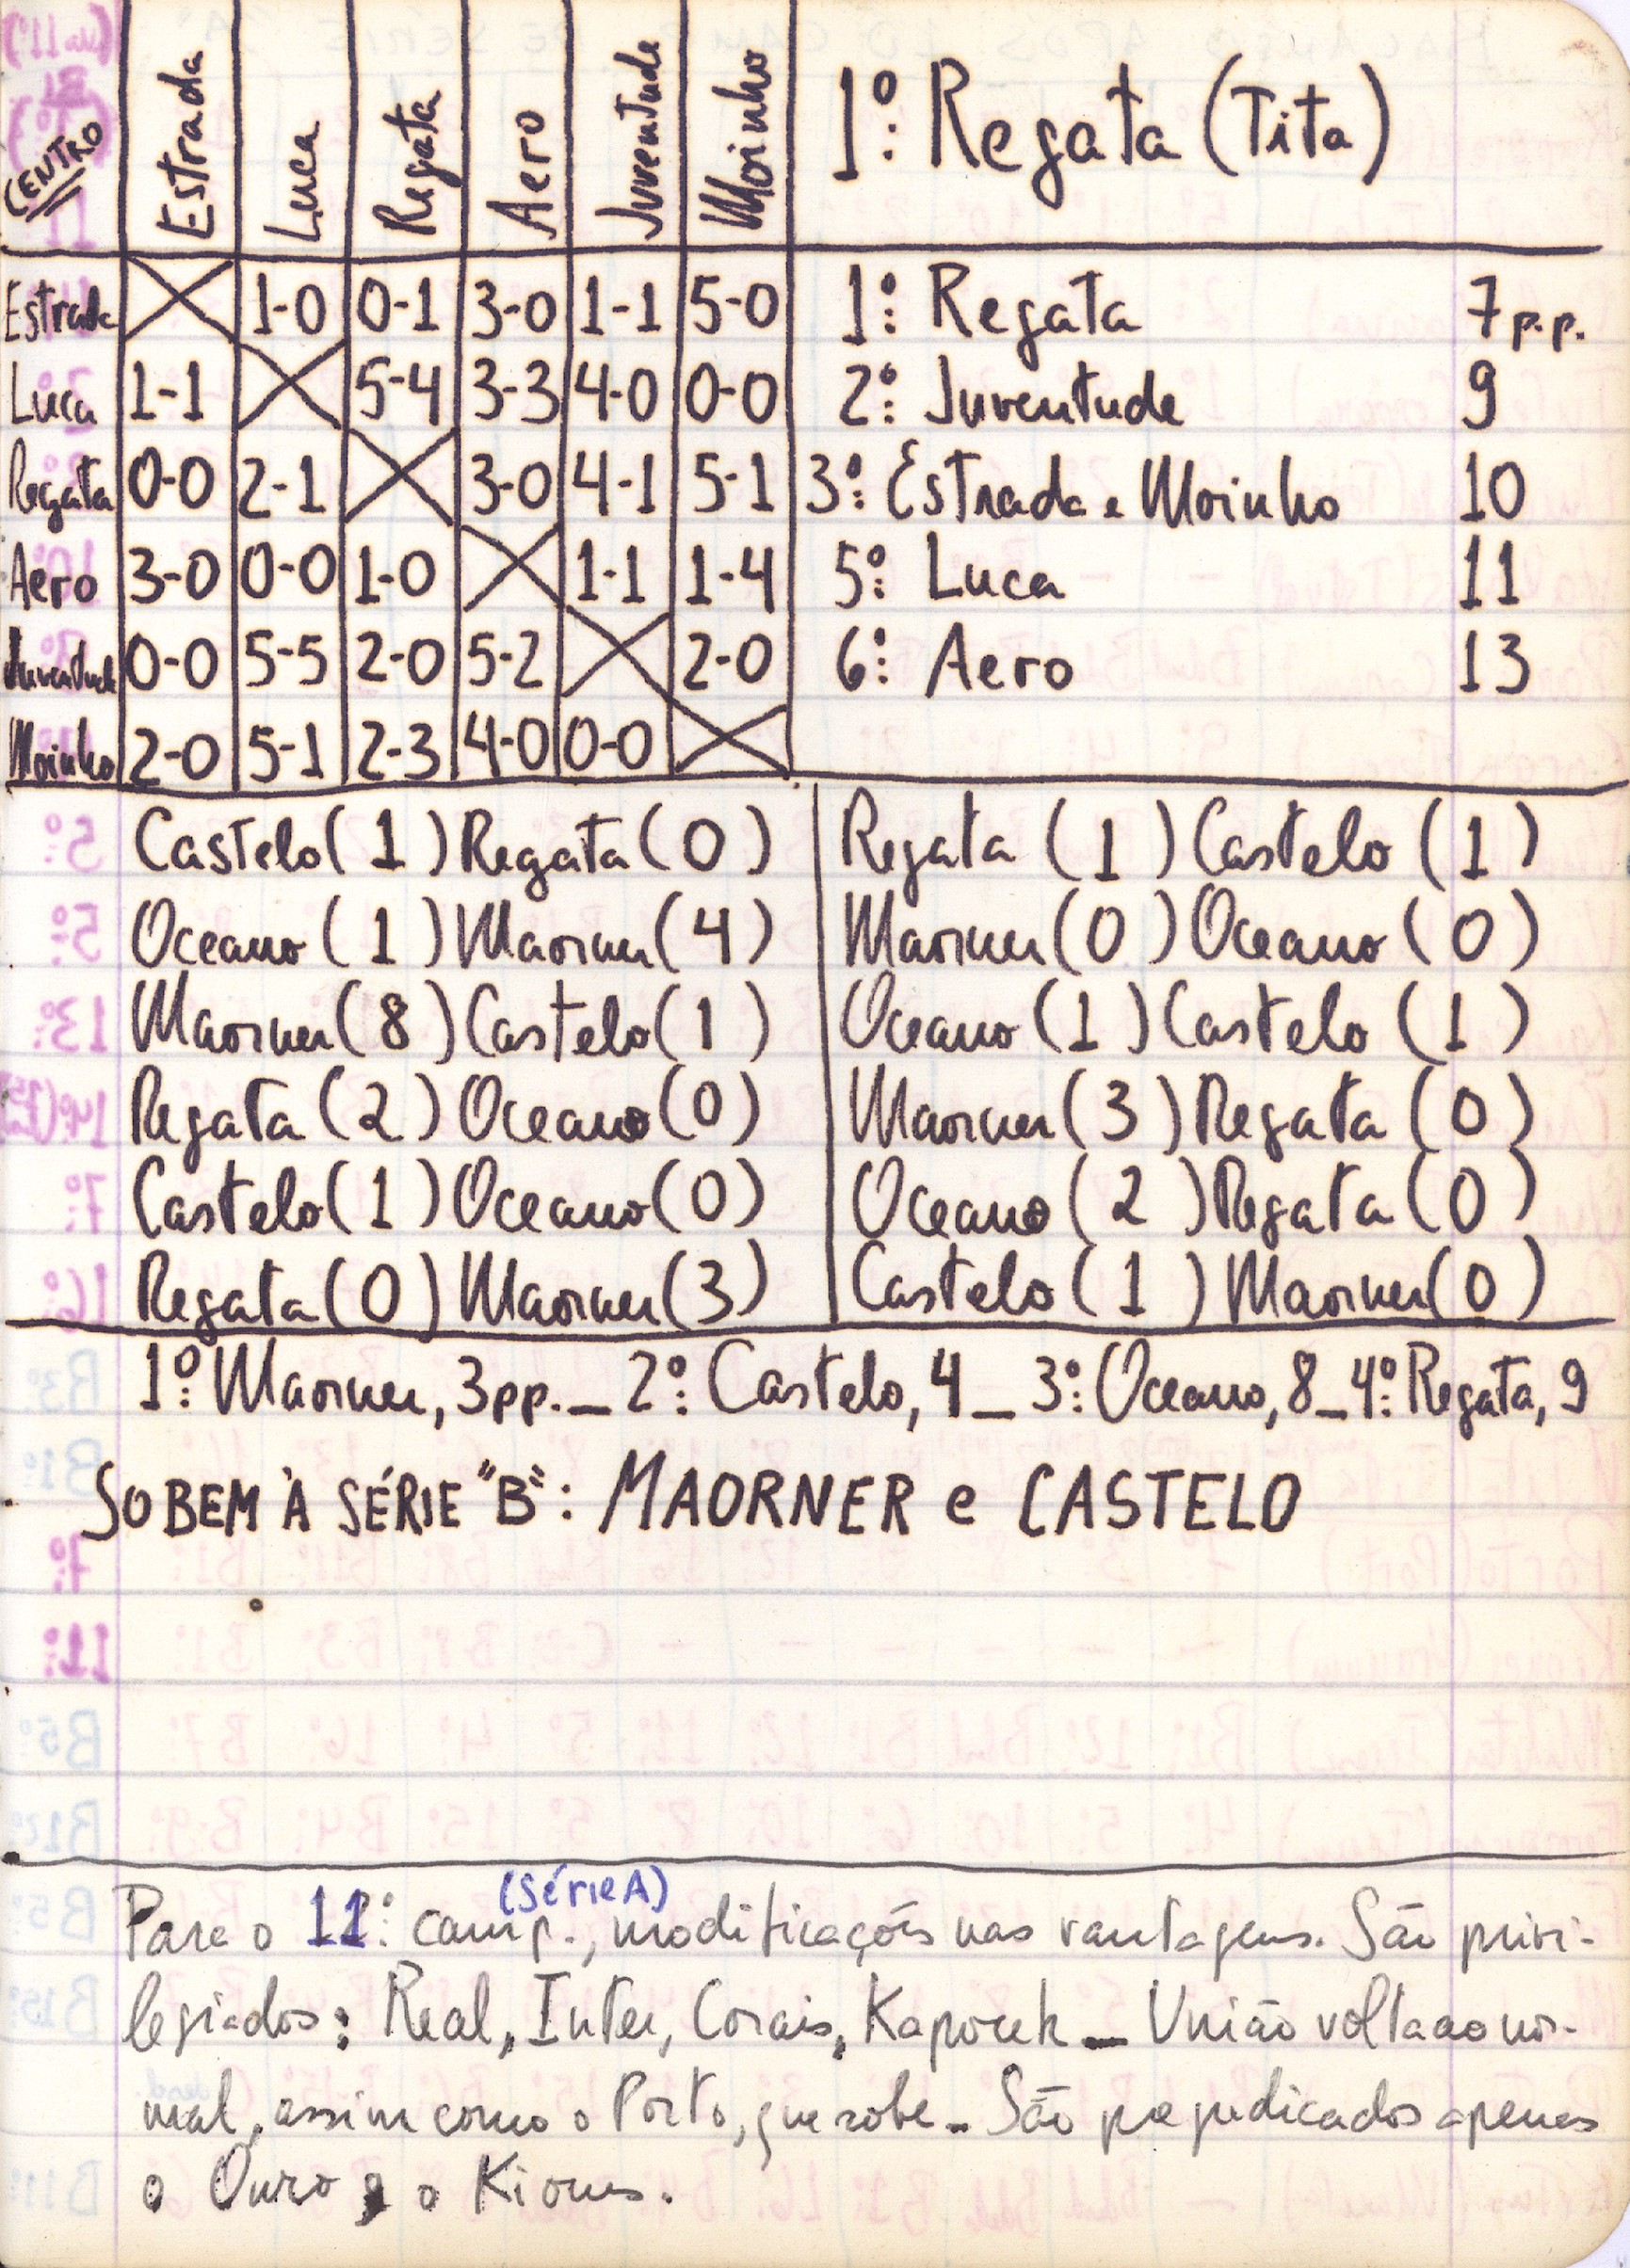 CENTRO Estrada Luca Regata Aero Juventude Moinho 1º: Regata (Tita)
Estrada 1-0 0-1 3-0 1-1 5-0 1º: Regata 7 p.p.
Luca 1-1 5-4 3-3 4-0 0-0 2º: Juventude 9
Regata 0-0 2-1 3-0 4-1 5-1 3º: Estrada e Moinho 10
Aero 3-0 0-0 1-0 1-1 1-4 5º: Luca 11
Juventude 0-0 5-5 2-0 5-2 2-0 6º: Aero 13
Moinho 2-0 5-1 2-3 4-0 0-0
Castelo (1) Regata (0) Regata (1) Castelo (1)
Oceano (1) Maorner (4) Maorner (0) Oceano (0)
Maorner (8) Castelo (1) Oceano (1) Castelo (1)
Regata (2) Oceano (0) Maorner (3) Regata (0)
Castelo (1) Oceano (0) Oceano (2) Regata (0)
Regata (0) Maorner (3) Castelo (1) Maorner (0)
1º: Maorner, 3pp. _ 2º: Castelo, 4 _ 3º: Oceano, 8 _ 4º: Regata, 9
SOBEM À SÉRIE "B": MAORNER e CASTELO
(Série A)
Para o 11º: camp., modificações nas vantagens. São privi-
legiados: Real, Inter, Corais, Kaporek _ União volta ao nor-
mal, assim como o Porto, que sobe _ São prejudicados apenas
o Ouro e o Kiorus.